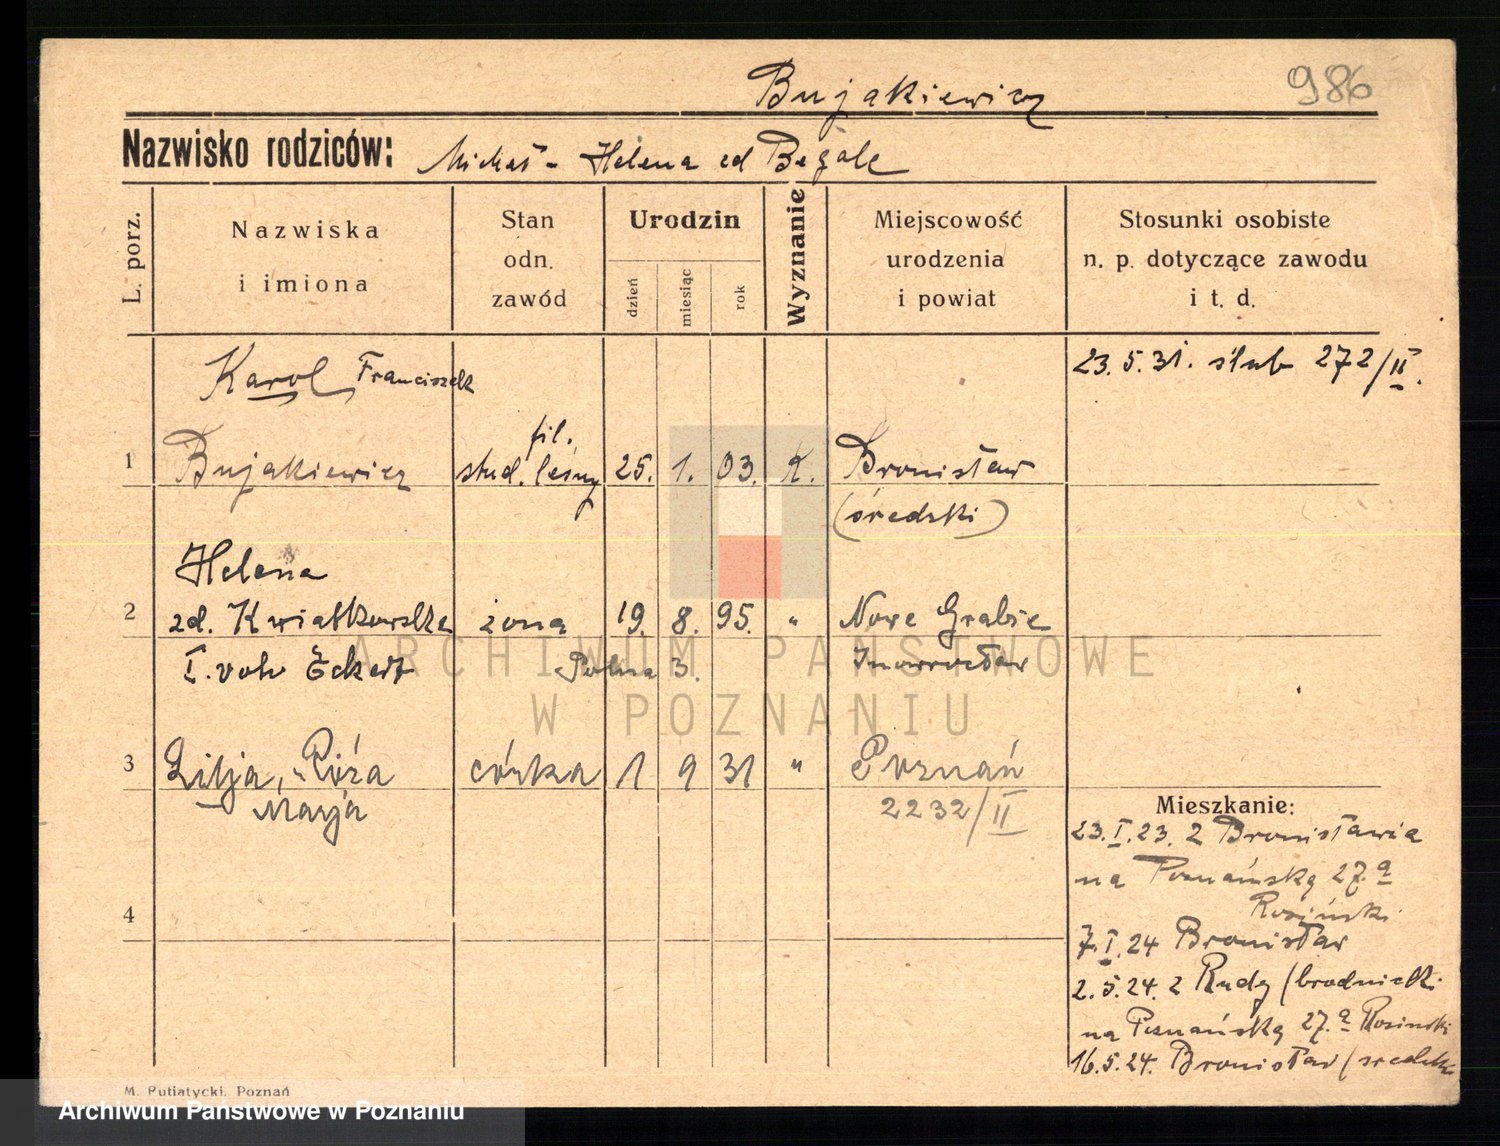 Bujakiewicz 986
Nazwisko rodziców: Michał - Helena zd Begale
L. porz.
Nazwiska i imiona
Stan odn. zawód
Urodzin
dzień
miesiąc
rok
Wyznanie
Miejscowość urodzenia i powiat
Stosunki osobiste n. p. dotyczące zawodu i t. d.
Karol Franciszek
23.5.31. ślub 272/II.
fil.
1 Bujakiewicz stud. leśny 25. 1. 03. K. Bronisław
(średzki)
Helena
2 zd. Kwiatkowska żona 19. 8. 95. " Nowe Grabie
I. voto Eckert Polna 3. Inowrocław
3 Lilja, Róża córka 1 9 31 " Poznań
Marja 2232/II
Mieszkanie:
23.I.23. z Bronisławia
na Poznańską 27.a
Rosiński
4
7.I.24 Bronisław
2.5.24. z Rudy (brodnicki
na Poznańską 27.a Rosiński
16.5.24. Bronisław (średzki
M. Putiatycki, Poznań
ARCHIWUM PAŃSTWOWE
W POZNANIU
Archiwum Państwowe w Poznaniu